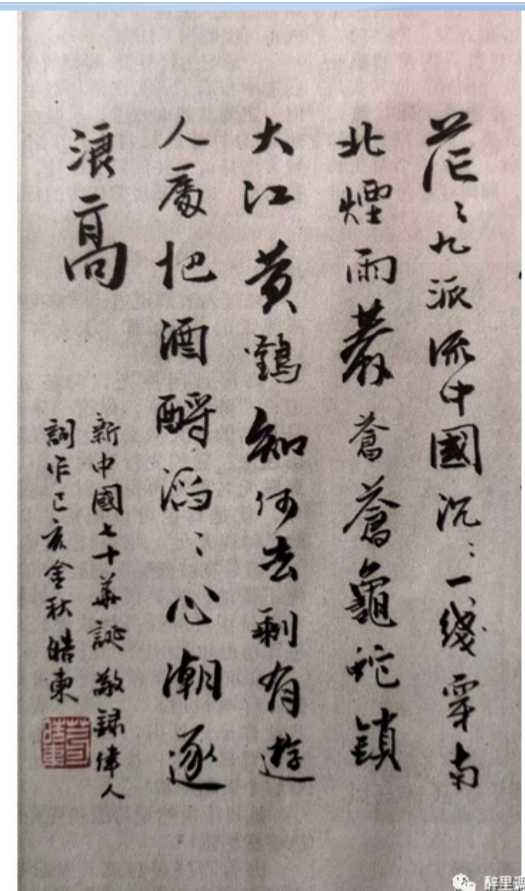 茫〻九派流中國沉〻一綫穿南
北煙雨莽蒼蒼龜蛇鎖
大江黄鶴知何去剩有遊
人處把酒酹滔〻心潮逐
浪高
新中國七十華誕敬録偉人
詞作己亥金秋皓東
醉里